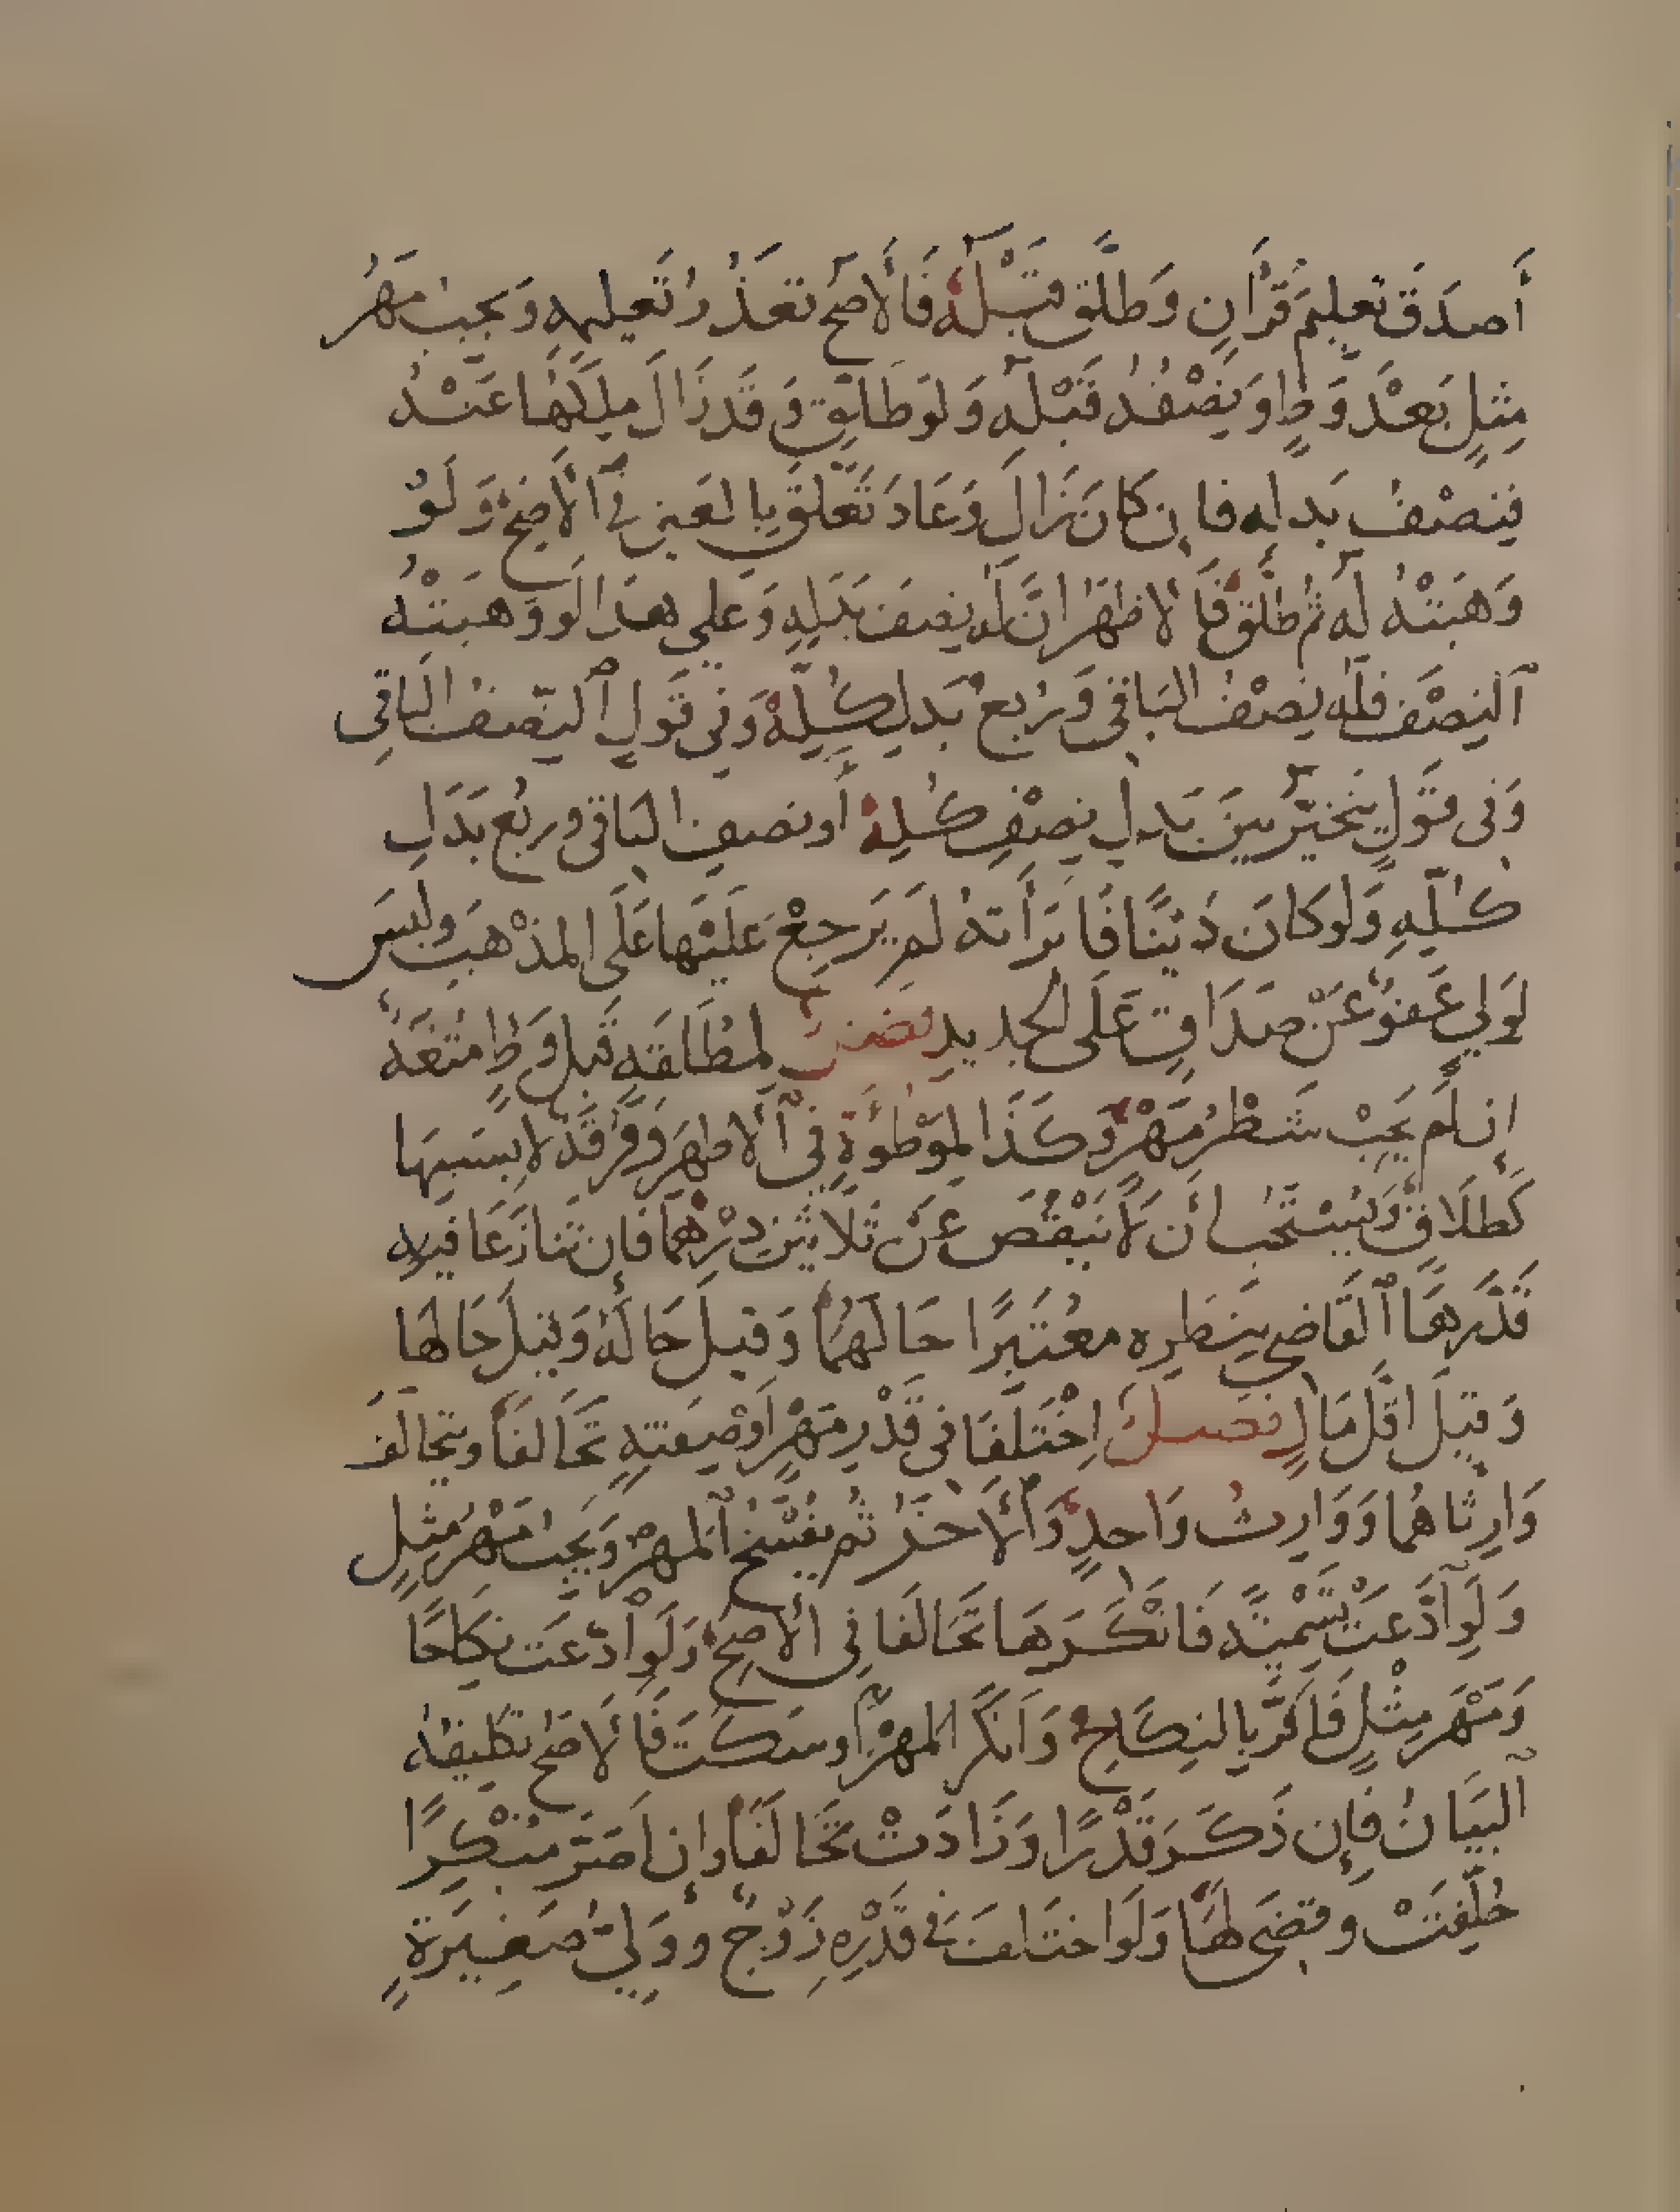 أَصدَقَ تعلِيمَ قُرْآنٍ وَطَلَّقَ قَبْلَهُ فَالْأَصَحُّ تعَذُّرُ تَعليمِهِ وَيَجِبُ مَهْرُ
مِثلٍ بَعْدَ وَطْءٍ وَنِصْفُهُ قَبْلَهُ وَلَو طَلَّقَ وَقَد زَالَ مِلكُهَا عَنْهُ
فَنِصْفُ بَدلِهِ فإن كَانَ زَالَ وَعَادَ تَعَلَّقَ بِالعَينِ في ٱلْأَصَحِّ وَلَوْ
وَهَبَتْهُ لَهُ ثُم طَلَّقَ فَالْأظهَرُ انَّ لَهُ نِصفَ بَدَلِهِ وَعَلى هذا لَو وَهَبَتْهُ
ٱلنِصْفَ فلَهُ نِصْفُ البَاقي وَرُبعُ بَدلِ كُلِّهُ وَفي قَولٍ ٱلنِّصفُ البَاقِي
وَفي قَولٍ يَتَخَيَّرُ بينَ بَدلِ نِصْفِ كُلِهُ أَو نصفِ البَاقي وربُع بَدَلِ
كُلِّهِ وَلَو كَانَ دَيْنًا فَابرَأَتهُ لَم يَرجِعْ عَلَيْها عَلَى المذْهَبِ وَلَيسَ
لِوَلي عَفوٌ عَنْ صدَاقٍ عَلَى الجديدِ فصل لِمُطَلَقَةٍ قَبل وَطءٍ مُتعَةٌ
إن لَم يَجِبْ شَطْرُ مَهْرٍ وَكَذَا لِمَوْطوءَةٍ فِي ٱلْأظهَرِ وَفُرْقَةٌ لا بِسَبَبِهَا
كَطَلَاقٍ وَيُسْتَحَبُ أَن لَا تَنْقُصَ عَنْ ثَلَاثِينَ دِرْهَمًا فَإِن تَنازَعَا فيهِ
قَدَّرهَا ٱلقَاضِي بِنَظَرِهِ معْتَبِرًا حَالَهُمَا وَقيلَ حَالَهُ وَقيلَ حَالهَا
وَقيلَ اقَلّ مَالٍ فصل اِخْتَلَفَا في قَدْرِ مَهْرٍ اَوْ صِفَتِهِ تَحَالَفَا ويتحالَفُ
وَارِثَاهُمَا وَوَارِثُ وَاحدٍ وَٱلْاخَرُ ثُم يفْسَخُ ٱلمَهرُ وَيَجِبُ مَهْرُ مِثلٍ
وَلَوِ ٱدَّعَتْ تَسْمِيَةً فَانْكَرَهَا تَحَالَفَا فِي ٱلْأَصَحِّ وَلَوِ ٱدَّعَت نِكَاحًا
وَمَهْرَ مِثْلٍ فَاَقَرَّ بِالنِكَاحِ وَاَنكَرَ المهْرَ اَو سَكَتَ فَالْأَصَحُّ تكلِيفُهُ
ٱلبَيَانُ فَإِن ذَكَرَ قَدْرًا وَزَادَتْ تَحَالَفَا وان اَصَرَّ مُنْكِرًا
حُلِّفَتْ وقضَى لهَا وَلَو اختَلفَ في قَدْرِهِ زَوْجٌ ووَلِيُّ صَغِيرَةٍ